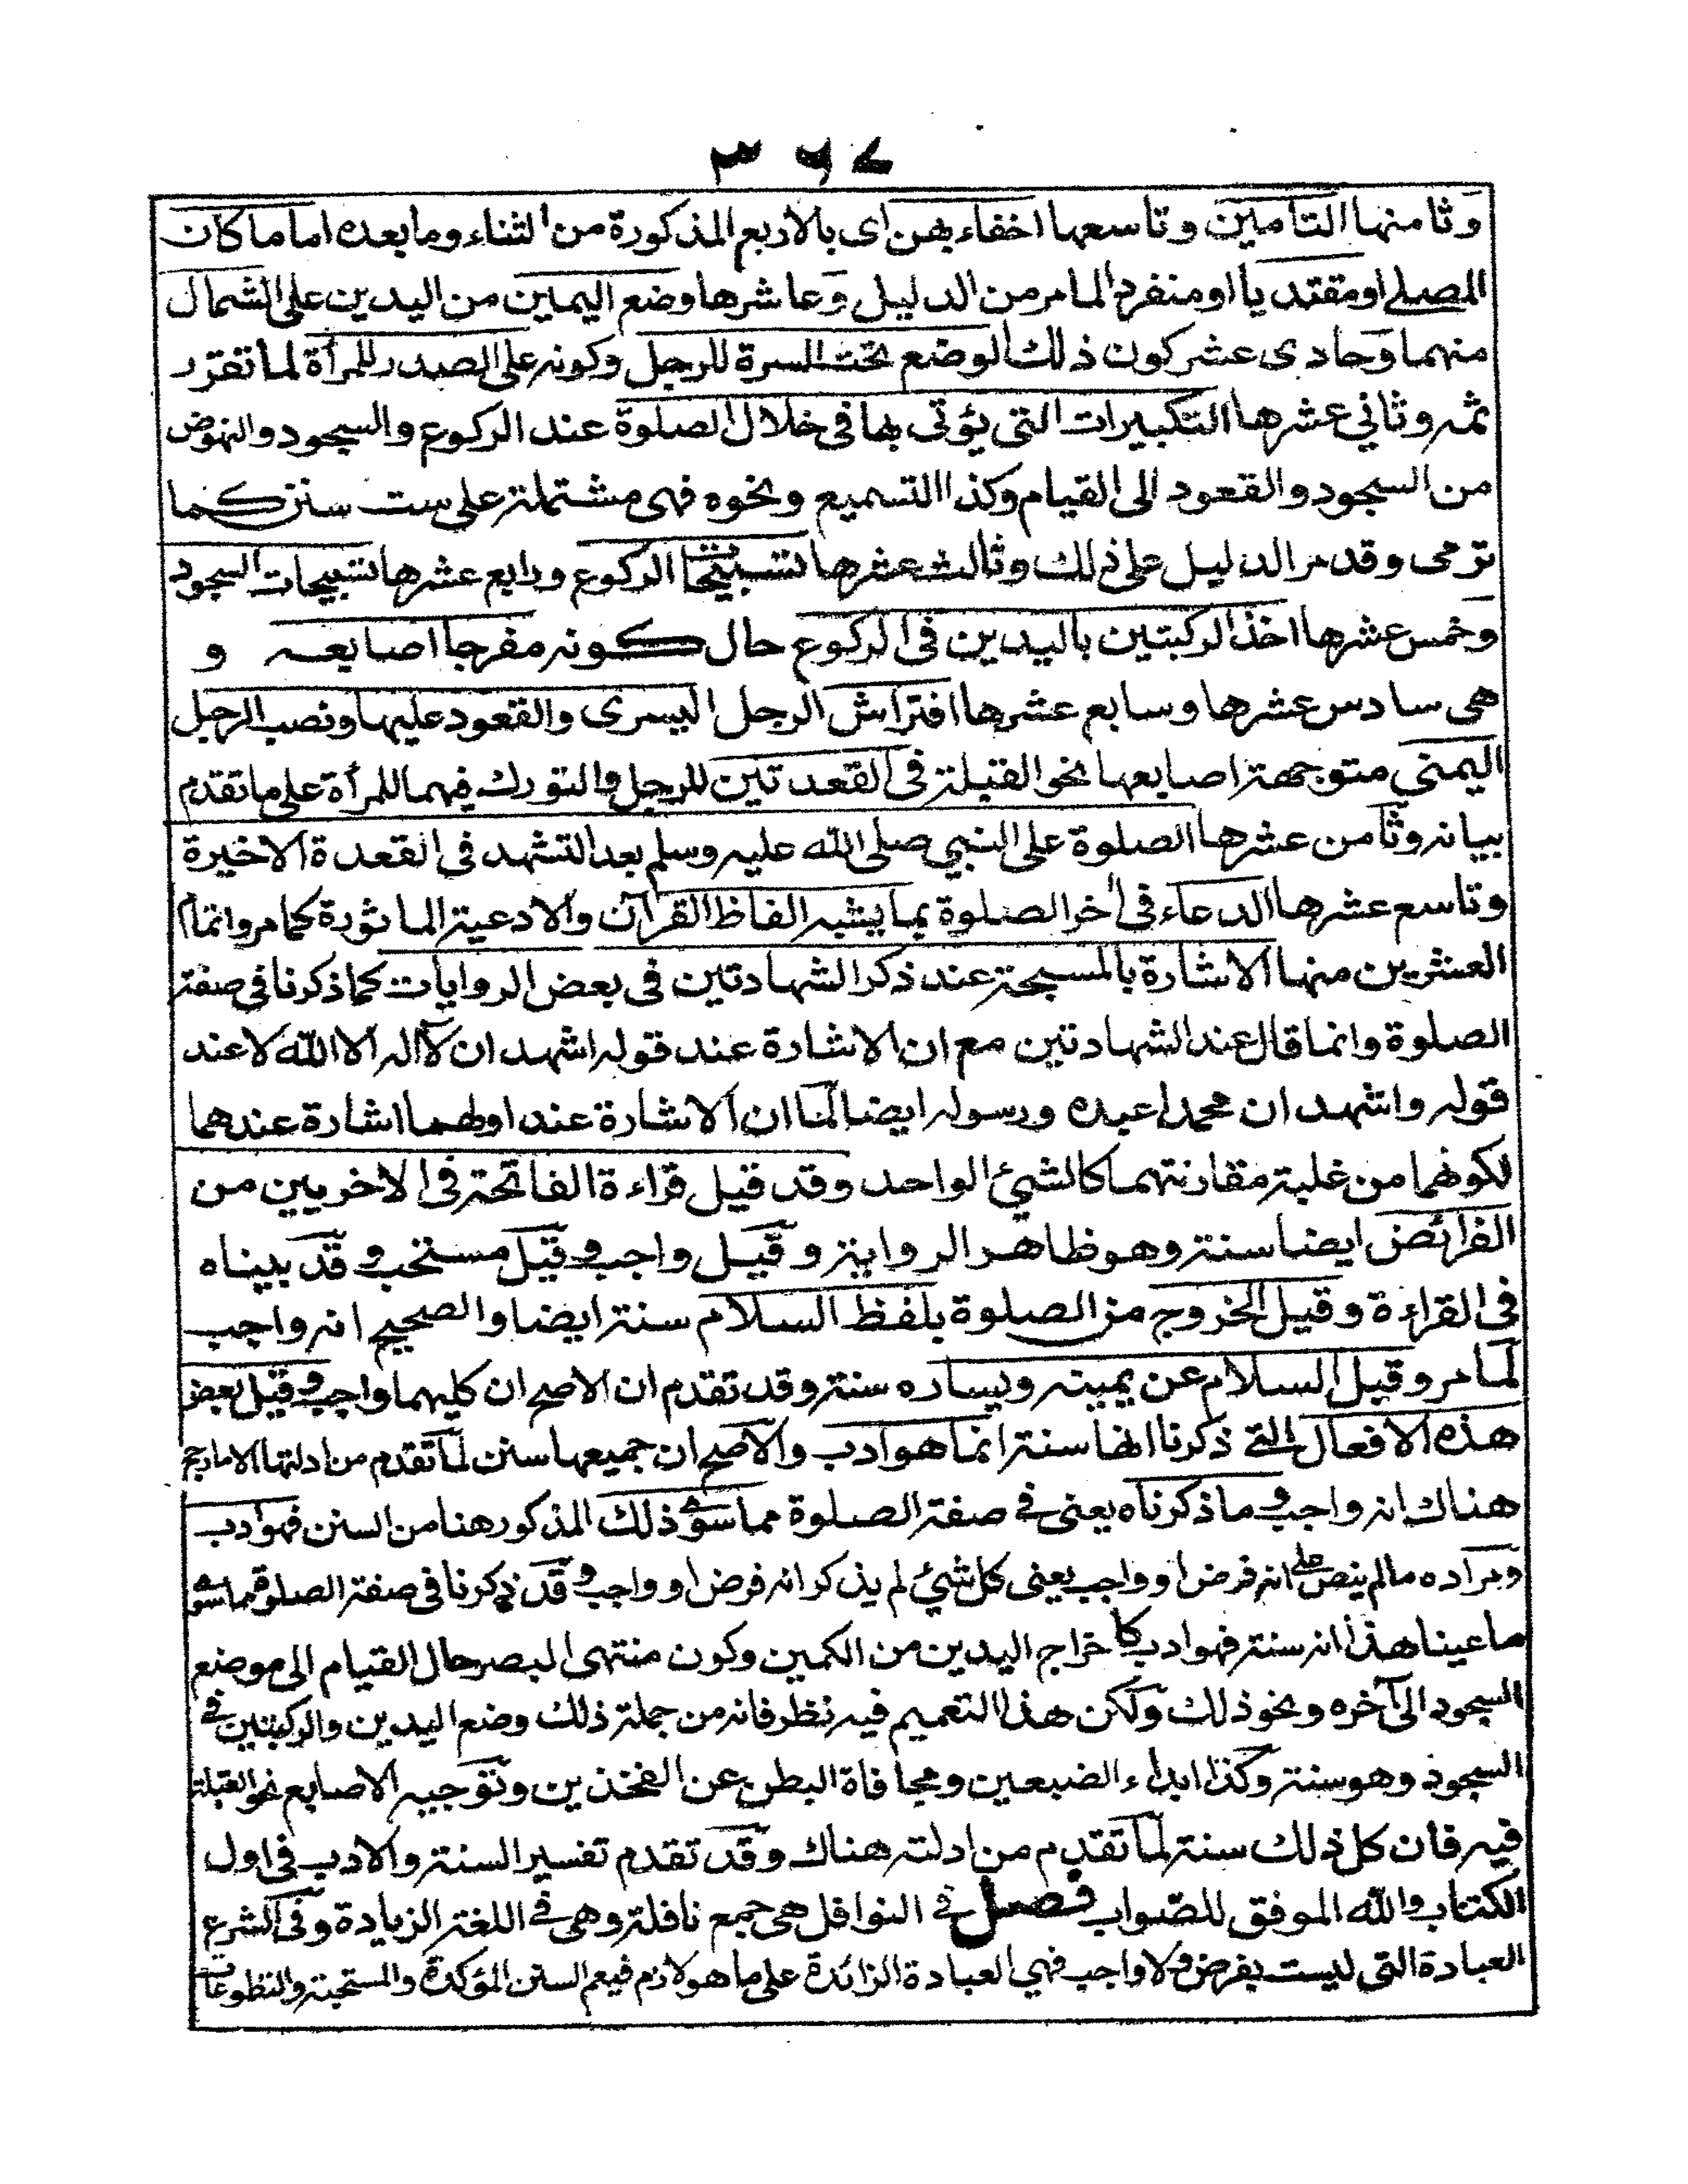 ٣٦٧
وثامنها التأمين وتاسعها اخفاء بهن اى بالاربع المذكورة من الثناء وما بعده اماما كان
المصلى او مقتديا او منفردا لما مر من الدليل وعاشرها وضع اليمين من اليدين على الشمال
منهما وحادى عشر كون ذلك الوضع تحت السرة للرجل وكونه على الصدر للمرأة لما تقرر
ثمه وثاني عشرها التكبيرات التى يؤتى بها فى خلال الصلوة عند الركوع والسجود والنهوض
من السجود والقعود الى القيام وكذا التسميع ونحوه فهى مشتملة على ست سنن كما
ترى وقد مر الدليل على ذلك وثالث عشرها تسبيحات الركوع ورابع عشرها تسبيحات السجود
وخمس عشرها اخذ الركبتين باليدين فى الركوع حال كونه مفرجا اصابعه و
هى سادس عشرها وسابع عشرها افتراش الرجل اليسرى والقعود عليها ونصب الرجل
اليمنى متوجهة اصابعها نحو القبلة فى القعدتين للرجل والتورك فيهما للمرأة على ما تقدم
بيانه وثامن عشرها الصلوة على النبي صلى الله عليه وسلم بعد التشهد فى القعدة الاخيرة
وتاسع عشرها الدعاء فى اخر الصلوة بما يشبه الفاظ القرآن والادعية الماثورة كما مر وانما
العشرين منها الاشارة بالمسبحة عند ذكر الشهادتين فى بعض الروايات كما ذكرنا فى صفة
الصلوة وانما قال عند الشهادتين مع ان الاشارة عند قوله اشهد ان لآ اله الا الله لا عند
قوله واشهد ان محمدا عبده ورسوله ايضا لما ان الاشارة عند اولهما اشارة عندهما
لكونهما من غلبة مقارنتهما كالشئ الواحد وقد قيل قراءة الفاتحة فى الاخريين من
الفرائض ايضا سنة وهو ظاهر الرواية وقيل واجب وقيل مستحب وقد بيناه
فى القراءة وقيل الخروج من الصلوة بلفظ السلام سنة ايضا والصحيح انه واجب
لما مر وقيل السلام عن يمينه ويساره سنة وقد تقدم ان الاصح ان كليهما واجب وقيل بعض
هذه الافعال التى ذكرنا انها سنة انما هو ادب والاصح ان جميعها سنن لما تقدم من ادلتها الا ما رجح
هناك انه واجب وما ذكرناه يعنى فى صفة الصلوة مما سوى ذلك المذكور هنا من السنن فهو ادب
ومراده ما لم ينص على انه فرض او واجب يعنى كل شئ لم يذكر انه فرض او واجب وقد ذكرنا فى صفة الصلوة مما سوى
ما عينا هذا انه سنة فهو ادب كاخراج اليدين من الكمين وكون منتهى البصر حال القيام الى موضع
السجود الى آخره ونحو ذلك ولكن هذا التعميم فيه نظر فانه من جملة ذلك وضع اليدين والركبتين فى
السجود وهو سنة وكذا ابداء الضبعين ومجافاة البطن عن الفخذين وتوجيه الاصابع نحو القبلة
فيه فان كل ذلك سنة لما تقدم من ادلته هناك وقد تقدم تفسير السنة والادب فى اول
الكتاب والله الموفق للصواب فصل فى النوافل هى جمع نافلة وهى فى اللغة الزيادة وفى الشرع
العبادة التى ليست بفرض ولا واجب فهي العبادة الزائدة على ما هو لازم فيعم السنن المؤكدة والمستحبة والتطوعات